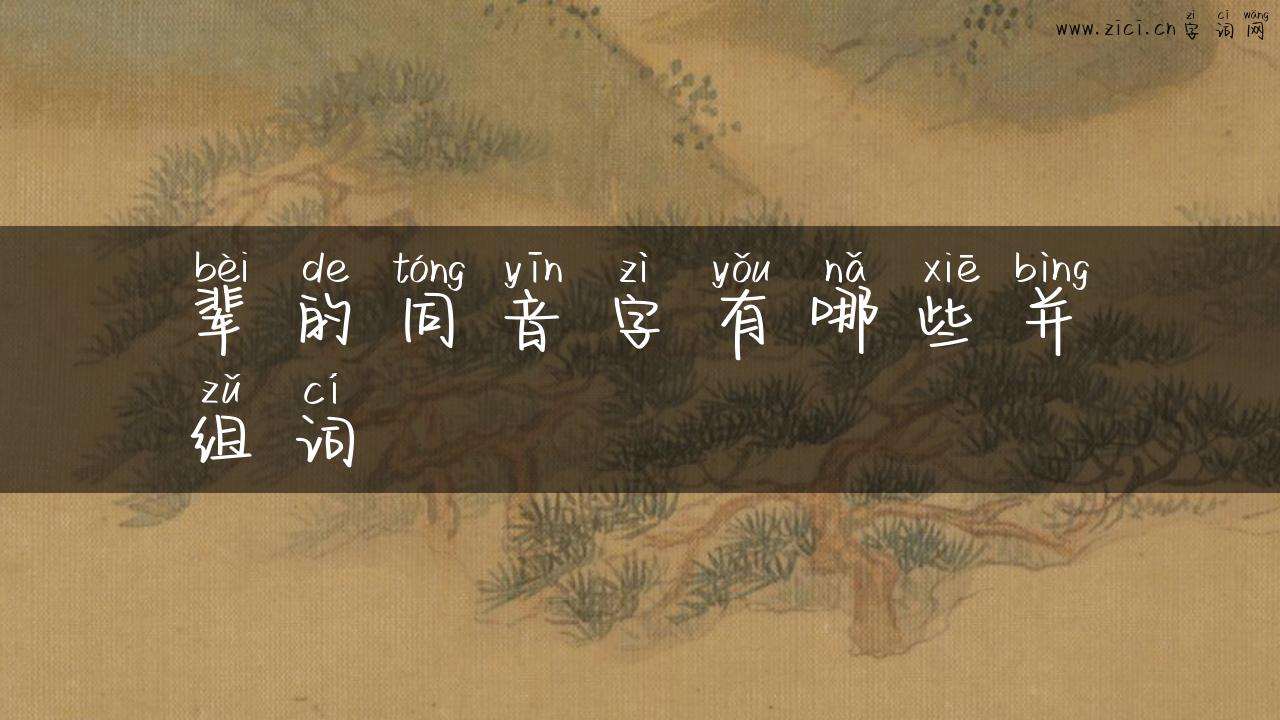 zì cí wǎng
www.zici.cn 字 词 网
bèi de tóng yīn zì yǒu nǎ xiē bìng
辈 的 同 音 字 有 哪 些 并
zǔ cí
组 词